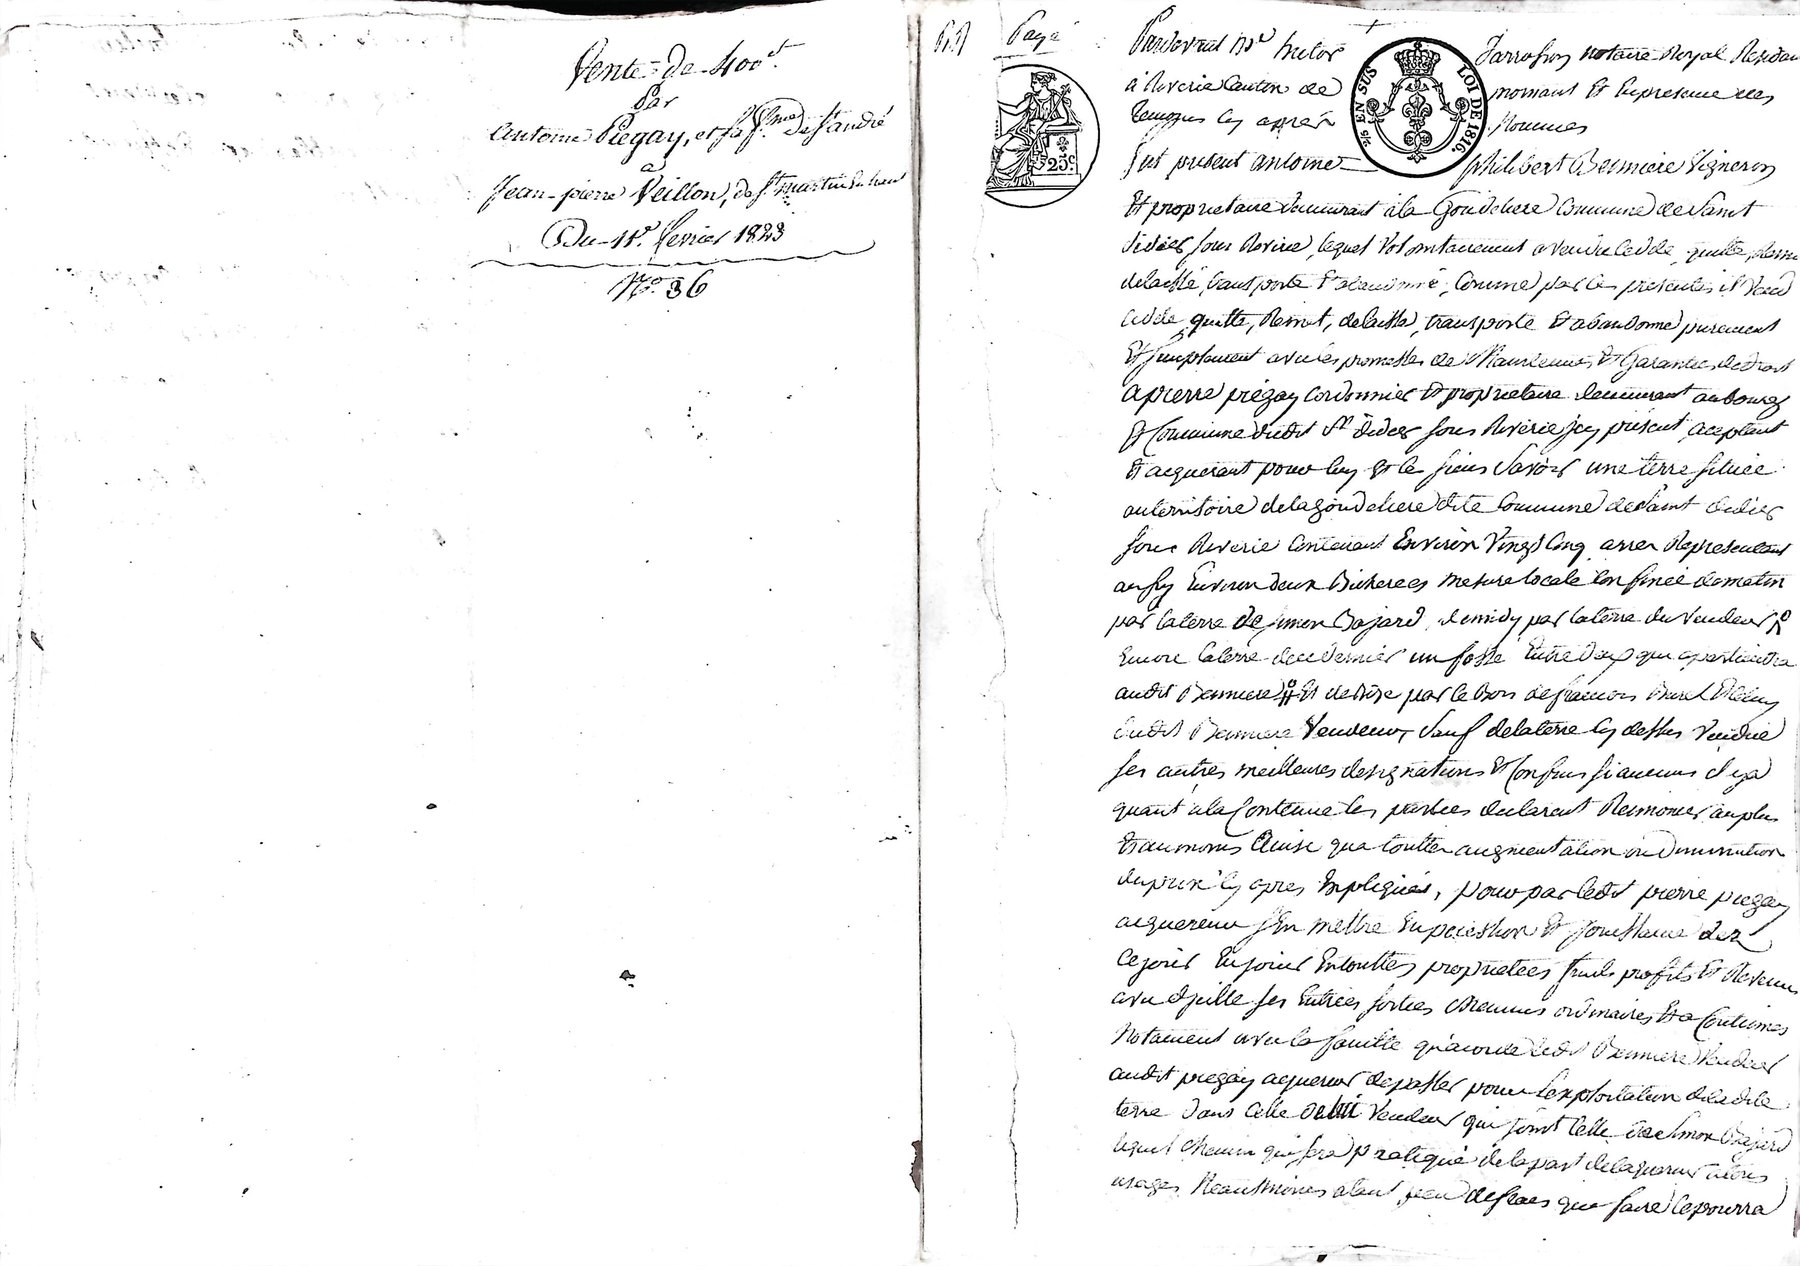 Vente de 400 ct.
Par
Antoine Piegay, et sa fme de St andré
a
Jean-pierre Veillon, de St martin en haut
Du 11e. fevrier 1823
No. 36
Payé
Pardevant Me hector Jarrosson notaire Royal Residant
à Riverie Canton de mornant Et En presence des
Temoins cy après Nommes
fut present antoine Philibert Bermiere Vigneron
Et proprietaire demeurant à la Goudeliere Commune de Saint
didier sous Riverie, lequel Volontairement a vendu cedde, quitte, Remis
delaissé, transporté Et abandonné, Comme par ces presentes il Vend
cedde, quitte, Remet, delaisse, transporte Et abandonne purement
Et simplement avec les promesses de Maintenue Et Garantie de droit
a pierre piégay cordonnier Et proprietaire demeurant au bourg
Et Commune dudit St didier sous Riverie icy présent, aceptant
Et acquerant pour luy Et les siens Savoir une terre située
au territoire de la goudeliere dite Commune de Saint didier
sous Riverie Contenant Environ Vingt Cinq arres Representant
aussy Environ deux Bicherees mesure locale Confinée de matin
par la terre de simon Bajard, de midy par la terre du Vendeur
Encore la terre de ce dernier un fossé Entre deux qui apartiendra
audit Bermiere Et de Bize par le Bois de francois Burel Et celuy
dudit Bermiere Vendeur, Sauf de la terre cy dessus Vendue
ses autres meilleures designations Et Confins si aucuns il y a
quant à la Contenue les parties declarent Renoncer au plus
Et au moins Ainsi qua toutte augmentation ou diminution
du prix cy apres Expliquée, pour par ledit pierre piegay
acquereur s'En mettre En possession Et jouissance dez
ce jour En jouir En touttes proprietees fruits profits Et Revenus
avec d'yuelle ses Entrées sorties chemins ordinaires Et a Coutumes
Notament avec la faculté qu'acorde ledit Bermiere Vendeur
audit piegay acquereur de passer pour l'exploitation de ladite
terre dans celle dudit Vendeur qui joint Celle de simon Bajard
lequel chemin qui sera pratiqué de la part de laquereur alors
usages Neanmoins a tant peu de frais que faire ce pourra